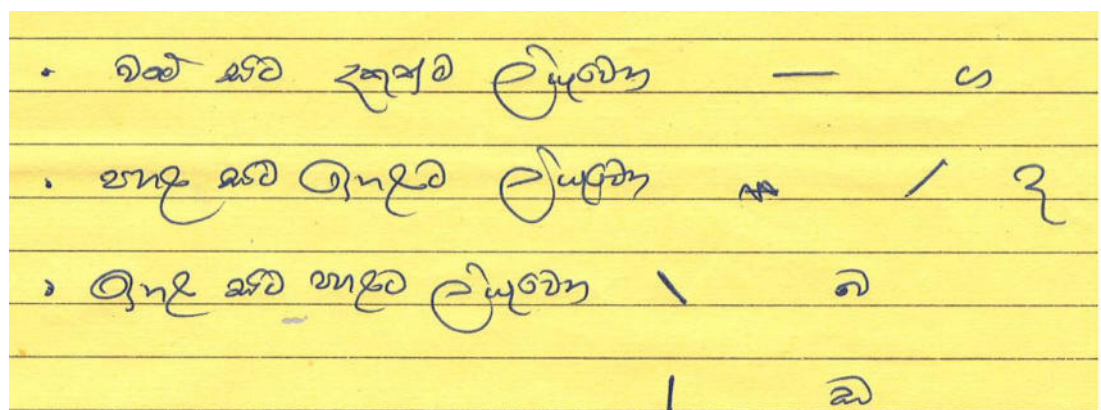 • වමේ සිට දකුණට ලියුවෙන — ග
• පහළ සිට ඉහළට ලියුවෙන / ද
• ඉහළ සිට පහළට ලියුවෙන \ බ
| ඩ